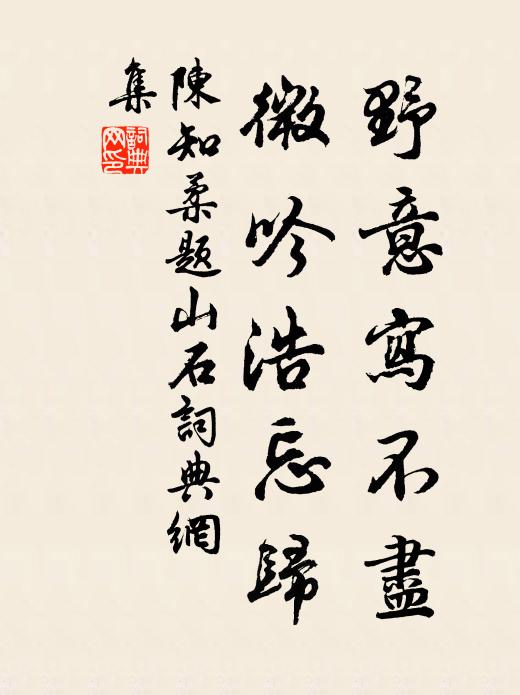 野意寫不盡
微吟浩忘歸
陳知柔題山石詞典網
集
詞典
網印